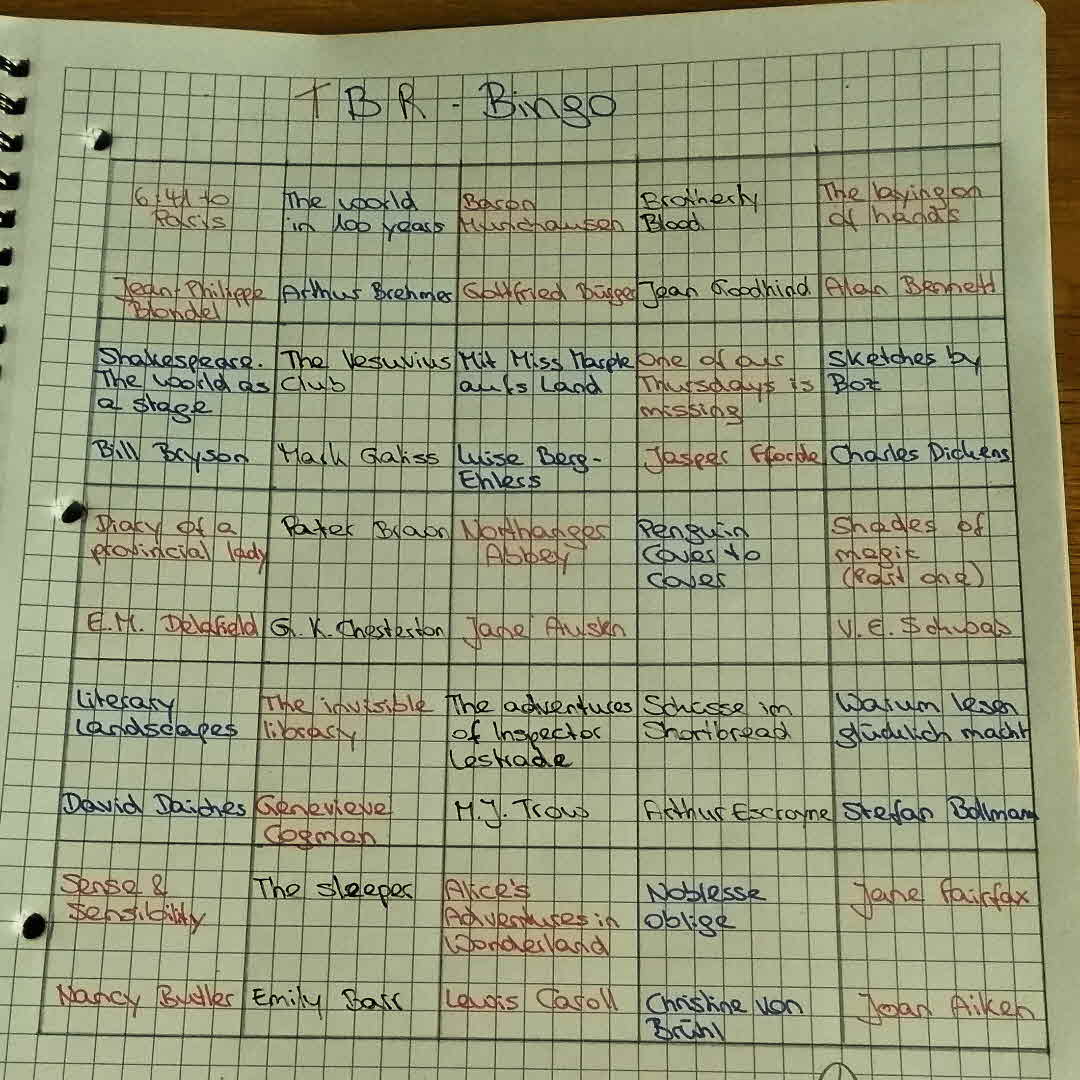 TBR - Bingo
6:41 to
Paris
Jean-Philippe
Blondel
The world
in 100 years
Arthur Brehmer
Baron
Munchausen
Gottfried Bürger
Brotherly
Blood
Jean Goodhind
The laying on
of hands
Alan Bennett
Shakespeare.
The world as
a stage
Bill Bryson
The Vesuvius
Club
Mark Gatiss
Mit Miss Marple
aufs Land
Luise Berg-
Ehlers
One of our
Thursdays is
missing
Jasper Fforde
Sketches by
Boz
Charles Dickens
Diary of a
provincial lady
E.M. Delafield
Pater Braon
G. K. Chesterton
Northanger
Abbey
Jane Austen
Penguin
Cover to
cover
Shades of
magic
(Part one)
V. E. Schwab
Literary
Landscapes
David Daiches
The invisible
library
Genevieve
Cogman
The adventures
of Inspector
Lestrade
M.J. Trow
Schüsse im
Shortbread
Arthur Escroyne
Warum Lesen
glücklich macht
Stefan Bollmann
Sense &
Sensibility
Nancy Butler
The sleeper
Emily Barr
Alice's
Adventures in
Wonderland
Lewis Caroll
Noblesse
oblige
Christine von
Brühl
Jane Fairfax
Joan Aiken